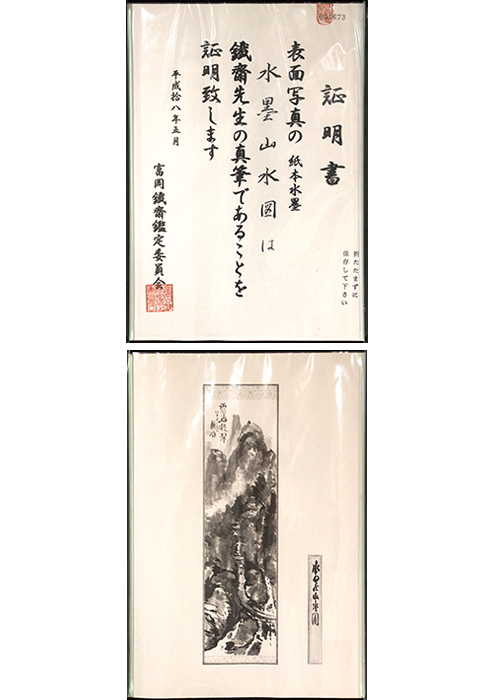 001673
証明書
表面写真の 紙本水墨
水墨山水図は
鐵齋先生の真筆であることを
証明致します
平成拾八年五月
富岡鐵齋鑑定委員会
折たたまずに
保存して下さい
水墨山水図